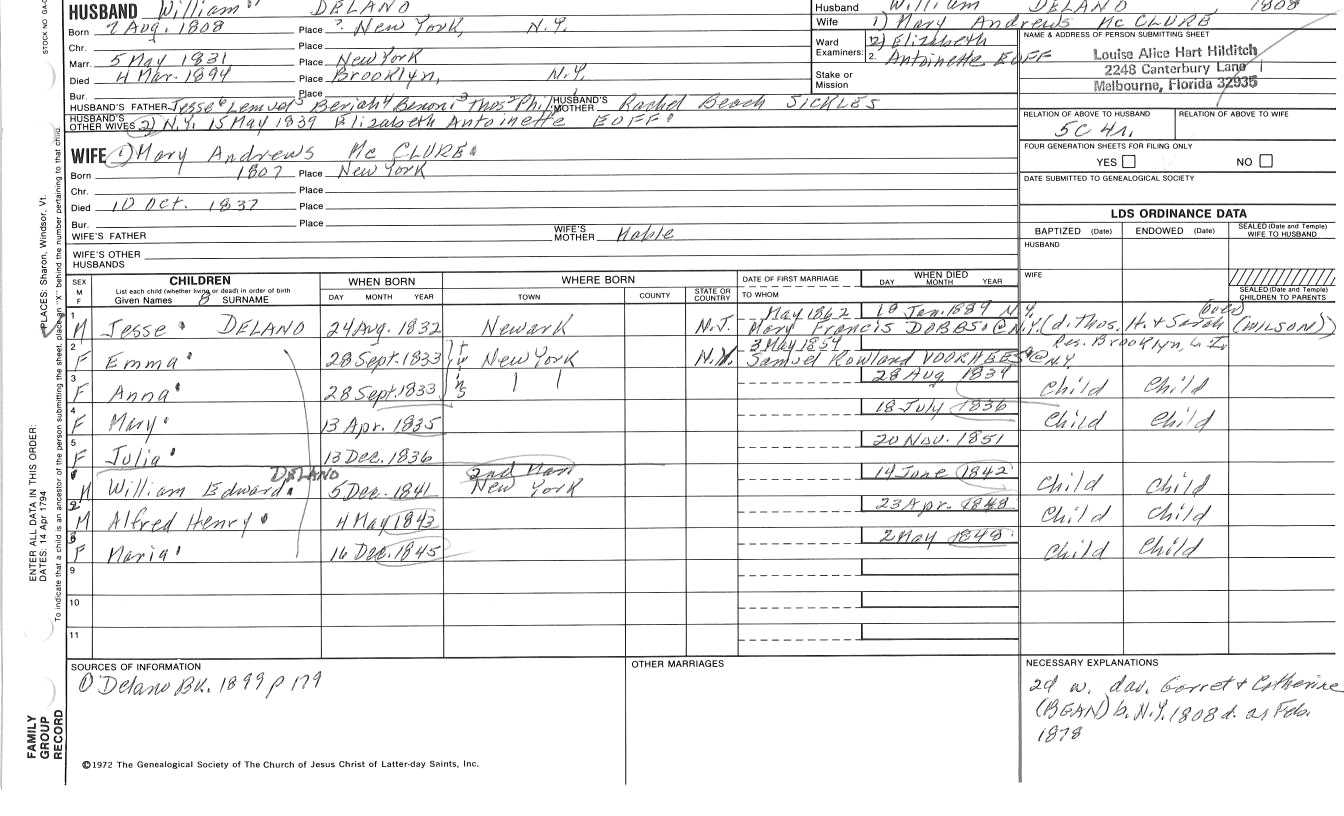 HUSBAND William DELANO
Born 7 Aug. 1808 Place ? New York, N.Y.
Chr. Place
Marr. 5 May 1831 Place New York
Died 4 Mar. 1894 Place Brooklyn, N.Y.
Bur. Place
HUSBAND'S FATHER Jesse⁶ Lemuel⁵ Beriah⁴ Benoni³ Thos² Phil¹ HUSBAND'S MOTHER Rachel Beach SICKLES
HUSBAND'S OTHER WIVES 2) N.Y. 15 May 1839 Elizabeth Antoinette EOFF
WIFE 1) Mary Andrews McCLURE
Born 1807 Place New York
Chr. Place
Died 10 Oct. 1837 Place
Bur. Place
WIFE'S FATHER WIFE'S MOTHER
WIFE'S OTHER HUSBANDS
Husband William DELANO 1808
Wife 1) Mary Andrews McCLURE
Ward Examiners: 1. 2) Elizabeth
2. Antoinette EOFF
Stake or Mission
NAME & ADDRESS OF PERSON SUBMITTING SHEET
Louise Alice Hart Hilditch
2248 Canterbury Lane
Melbourne, Florida 32935
RELATION OF ABOVE TO HUSBAND RELATION OF ABOVE TO WIFE
5C 4r.
FOUR GENERATION SHEETS FOR FILING ONLY
YES NO
DATE SUBMITTED TO GENEALOGICAL SOCIETY
LDS ORDINANCE DATA
BAPTIZED (Date) ENDOWED (Date) SEALED (Date and Temple) WIFE TO HUSBAND
HUSBAND
WIFE
SEALED (Date and Temple) CHILDREN TO PARENTS
SEX M F CHILDREN WHEN BORN WHERE BORN DATE OF FIRST MARRIAGE WHEN DIED
List each child (whether living or dead) in order of birth
Given Names 8 SURNAME DAY MONTH YEAR TOWN COUNTY STATE OR COUNTRY TO WHOM DAY MONTH YEAR
1 M Jesse DELANO 24 Aug. 1832 Newark N.J. May 1862 18 Jan. 1889 N.Y. (over)
Mary Francis DOBBS @ N.Y. (d. Thos. H. & Sarah (WILSON))
2 F Emma 28 Sept. 1833 twins New York N.Y. 3 May 1854 Res. Brooklyn, L.I.
Samuel Rowland VOORHEES @ N.Y.
3 F Anna 28 Sept. 1833 " 28 Aug. 1834 Child Child
4 F Mary 13 Apr. 1835 18 July 1836 Child Child
5 F Julia 13 Dec. 1836 20 Nov. 1851
DELANO 2nd Marr
M William Edward 5 Dec. 1841 New York 14 June 1842 Child Child
M Alfred Henry 4 May 1843 23 Apr. 1848 Child Child
8 F Maria 16 Dec. 1845 2 May 1848 Child Child
9
10
11
SOURCES OF INFORMATION
① Delano Bk. 1899 p 179
OTHER MARRIAGES
NECESSARY EXPLANATIONS
2d w. dau. Garret & Catherine
(BEAN) b. N.Y. 1808 d. 21 Feb.
1878
©1972 The Genealogical Society of The Church of Jesus Christ of Latter-day Saints, Inc.
FAMILY GROUP RECORD
ENTER ALL DATA IN THIS ORDER:
DATES: 14 Apr 1794
PLACES: Sharon, Windsor, Vt.
To indicate that a child is an ancestor of the person submitting the sheet, place an "X" behind the number pertaining to that child.